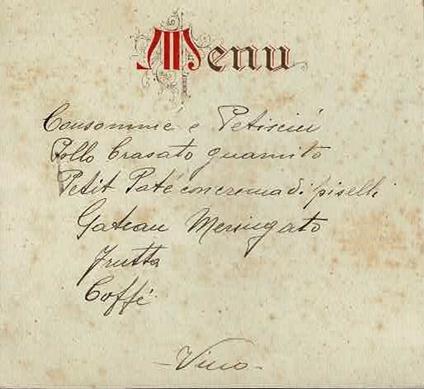 Menu
Consommie e Petisciú
Pollo Brasato guarnito
Petit Paté con crema di piselli
Gateau Meringato
Frutta
Caffé
-Vino-